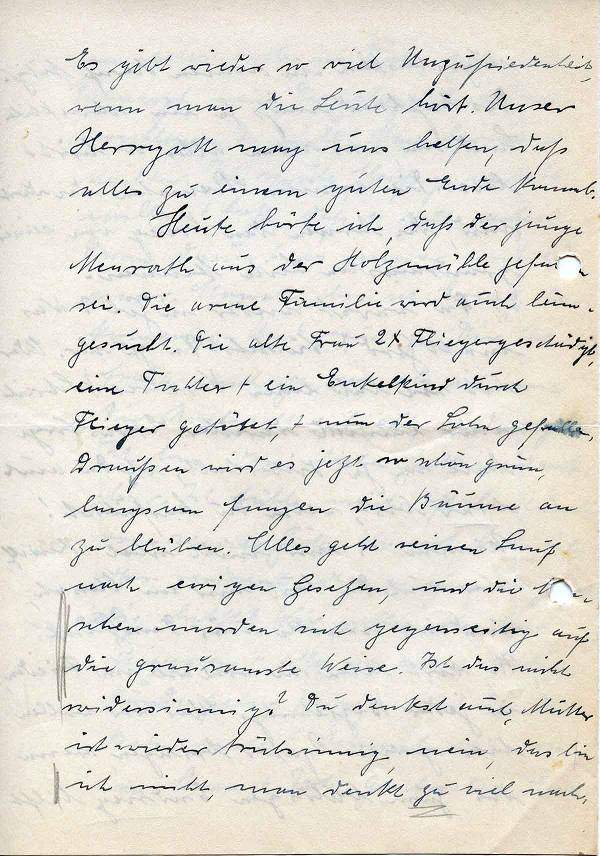 Es gibt wieder so viel Unzufriedenheit,
wenn man die Leute hört. Unser
Herrgott mag uns helfen, daß
alles zu einem guten Ende kommt.
Heute hörte ich, daß der junge
Menrath aus der Holzmühle gefallen
sei. Die arme Familie wird auch heim-
gesucht. Die alte Frau 2x Fliegergeschädigt,
eine Tochter + ein Enkelkind durch
Flieger getötet, + nun der Sohn gefallen.
Draußen wird es jetzt so schön grün,
langsam fangen die Bäume an
zu blühen. Alles geht seinen Lauf
nach ewigen Gesetzen, und die Men-
schen morden sich gegenseitig auf
die grausamste Weise. Ist das nicht
widersinnig? Du denkst auch, Mutter
ist wieder trübsinnig, nein, das bin
ich nicht, man denkt zu viel nach.